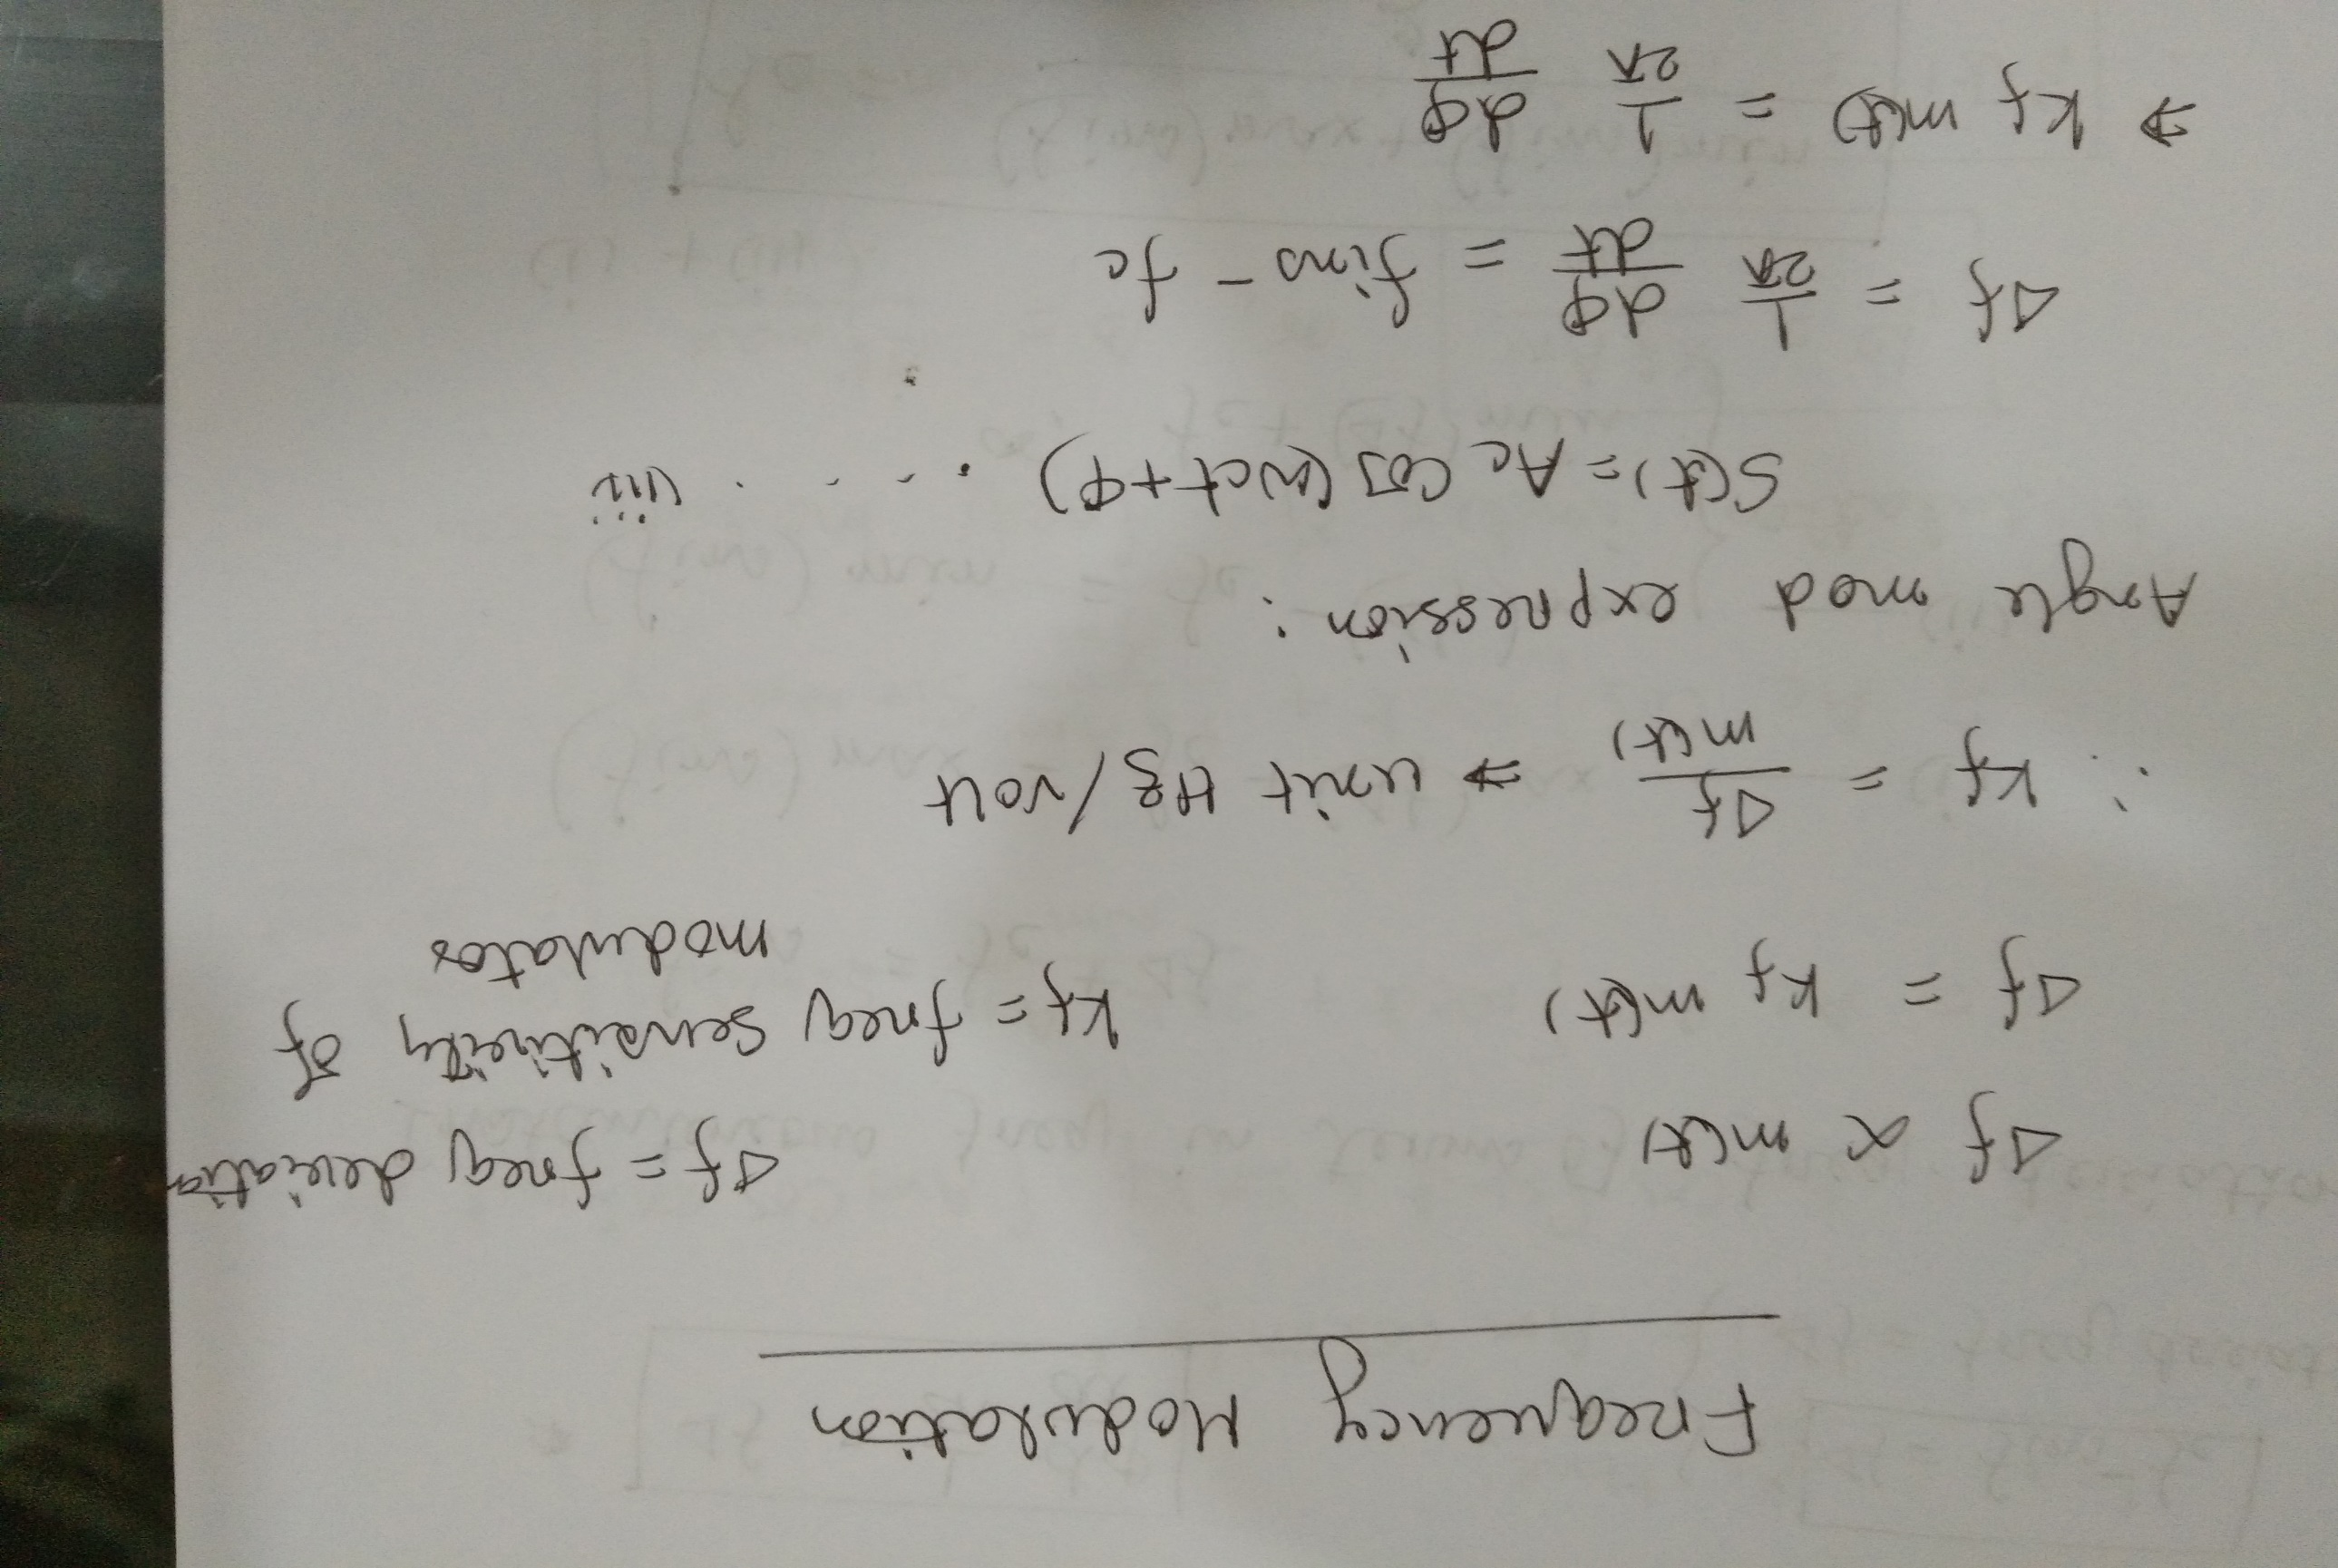 Frequency Modulation
Δf ∝ m(t) Δf = freq deviation
Δf = Kf m(t) Kf = freq sensitivity of
modulator
∴ Kf = Δf/m(t) ⇒ unit Hz/volt
Angle mod expression:
S(t) = Ac Cos (wct+φ) . . . . . iii
Δf = 1/2π dφ/dt = fins - fc
⇒ Kf m(t) = 1/2π dφ/dt